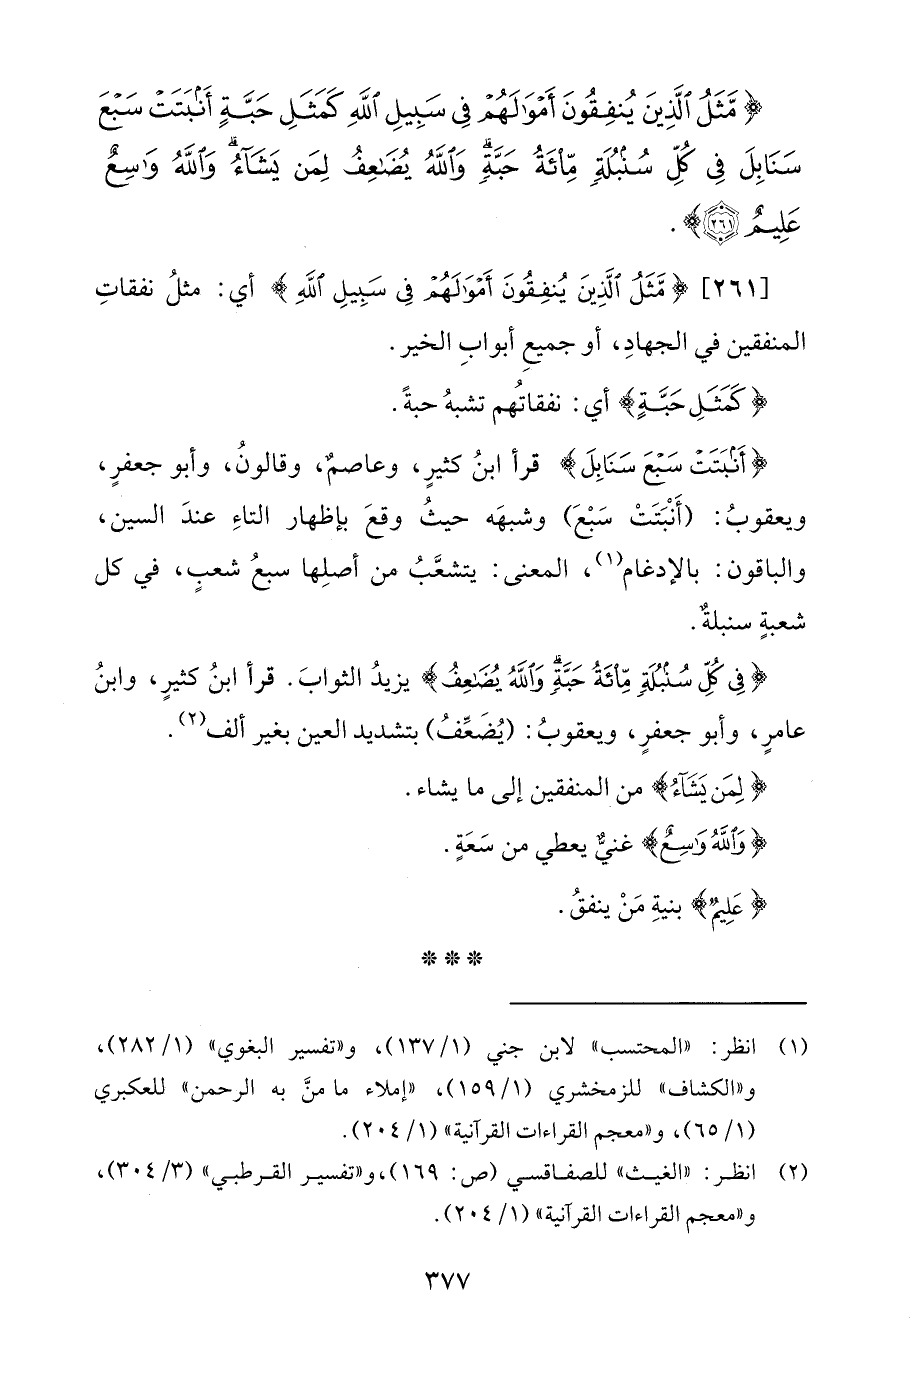 ﴿ مَّثَلُ ٱلَّذِينَ يُنفِقُونَ أَمْوَٰلَهُمْ فِى سَبِيلِ ٱللَّهِ كَمَثَلِ حَبَّةٍ أَنۢبَتَتْ سَبْعَ
سَنَابِلَ فِى كُلِّ سُنۢبُلَةٍ مِّا۟ئَةُ حَبَّةٍ ۗ وَٱللَّهُ يُضَٰعِفُ لِمَن يَشَآءُ ۗ وَٱللَّهُ وَٰسِعٌ
عَلِيمٌ ۝٢٦١ ﴾ .
[٢٦١] ﴿ مَّثَلُ ٱلَّذِينَ يُنفِقُونَ أَمْوَٰلَهُمْ فِى سَبِيلِ ٱللَّهِ ﴾ أي: مثلُ نفقاتِ
المنفقين في الجهادِ، أو جميعِ أبوابِ الخير.
﴿ كَمَثَلِ حَبَّةٍ ﴾ أي: نفقاتُهم تشبهُ حبةً.
﴿ أَنۢبَتَتْ سَبْعَ سَنَابِلَ ﴾ قرأ ابنُ كثيرٍ، وعاصمٌ، وقالونُ، وأبو جعفرٍ،
ويعقوبُ: (أَنْبَتَتْ سَبْعَ) وشبهَه حيثُ وقعَ بإظهار التاءِ عندَ السين،
والباقون: بالإدغام(١)، المعنى: يتشعَّبُ من أصلِها سبعُ شعبٍ، في كل
شعبةٍ سنبلةٌ.
﴿ فِى كُلِّ سُنۢبُلَةٍ مِّا۟ئَةُ حَبَّةٍ ۗ وَٱللَّهُ يُضَٰعِفُ ﴾ يزيدُ الثوابَ. قرأ ابنُ كثيرٍ، وابنُ
عامرٍ، وأبو جعفرٍ، ويعقوبُ: (يُضَعِّفُ) بتشديد العين بغير ألف(٢).
﴿ لِمَن يَشَآءُ ﴾ من المنفقين إلى ما يشاء.
﴿ وَٱللَّهُ وَٰسِعٌ ﴾ غنيٌّ يعطي من سَعَةٍ.
﴿ عَلِيمٌ ﴾ بنيةِ مَنْ ينفقُ.
* * *
(١) انظر: «المحتسب» لابن جني (١/ ١٣٧)، و«تفسير البغوي» (١/ ٢٨٢)،
و«الكشاف» للزمخشري (١/ ١٥٩)، «إملاء ما منَّ به الرحمن» للعكبري
(١/ ٦٥)، و«معجم القراءات القرآنية» (١/ ٢٠٤).
(٢) انظر: «الغيث» للصفاقسي (ص: ١٦٩)، و«تفسير القرطبي» (٣/ ٣٠٤)،
و«معجم القراءات القرآنية» (١/ ٢٠٤).
٣٧٧